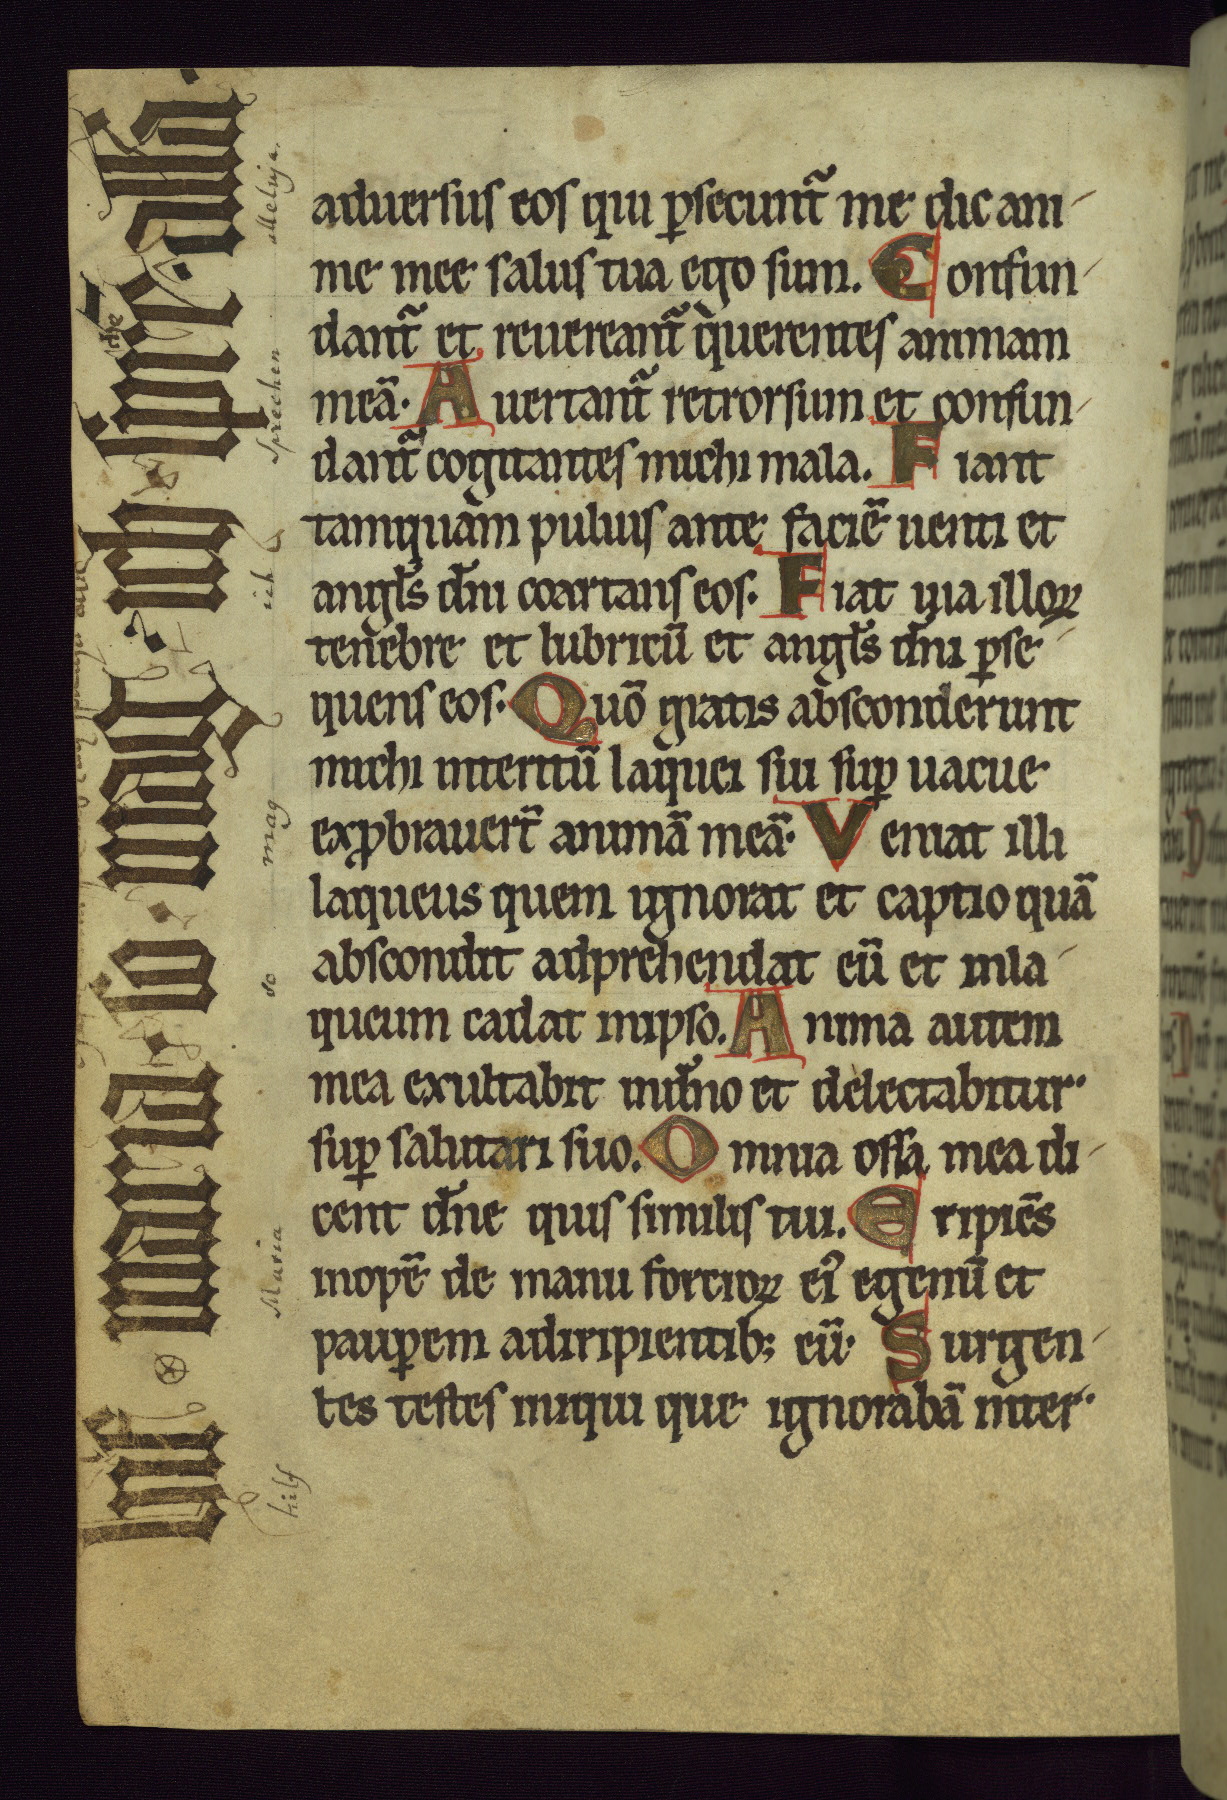 aduersus eos qui ꝑsecunt̃ me dic ani
me mee salus tua ego sum. Confun
dant̃ et reuereant̃ querentes animam
meā. Auertant̃ retrorsum et confun
dant̃ cogitantes michi mala. Fiant
tamquam puluis ante faciē uenti et
angl̃s dñi coartans eos. Fiat uia illoꝝ
tenebre et lubricū et angl̃s dñi ꝑse
quens eos. Quō gratis absconderunt
michi interitū laquei sui suꝑ uacue
exꝓbrauert̃ animā meā. Veniat illi
laqueus quem ignorat et captio quā
abscondit adprehendat eū et inla
queum cadat inipso. Anima autem
mea exultabit indño et delectabitur
suꝑ salutari suo. Omnia ossa mea di
cent dñe quis similis tui. Eripiēs
inopē de manu forcioꝝ ei᷒ egenū et
pauꝑem adiripientib; eū. Surgen
tes testes iniqui que ignorabā inter
hilf
maria so mag ich spreche alla
hilf
Maria
so
mag
ich
Sprechen
alleluja.